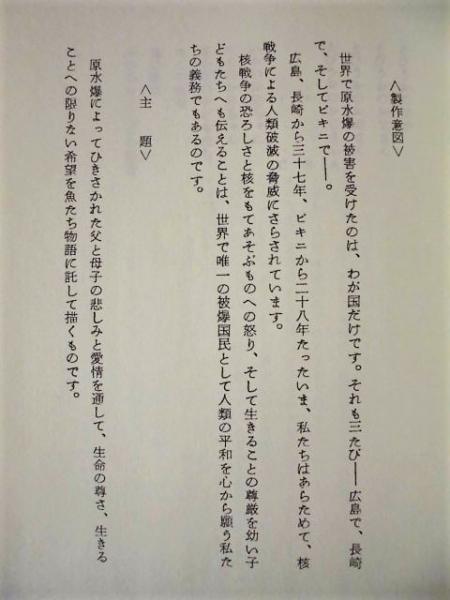 ＜製作意図＞
世界で原水爆の被害を受けたのは、わが国だけです。それも三たび――広島で、長崎
で、そしてビキニで――。
広島、長崎から三十七年、ビキニから二十八年たったいま、私たちはあらためて、核
戦争による人類破滅の脅威にさらされています。
核戦争の恐ろしさと核をもてあそぶものへの怒り、そして生きることの尊厳を幼い子
どもたちへも伝えることは、世界で唯一の被爆国民として人類の平和を心から願う私た
ちの義務でもあるのです。
＜主　題＞
原水爆によってひきさかれた父と母子の悲しみと愛情を通して、生命の尊さ、生きる
ことへの限りない希望を魚たち物語に託して描くものです。